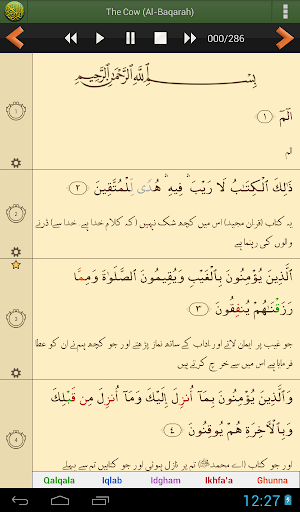 The Cow (Al-Baqarah)
000/286
بِسْمِ ٱللَّهِ ٱلرَّحْمَٰنِ ٱلرَّحِيمِ
1
الٓمٓ ﴿١﴾
لم
2
ذَٰلِكَ ٱلْكِتَٰبُ لَا رَيْبَ ۛ فِيهِ ۛ هُدًى لِّلْمُتَّقِينَ ﴿٢﴾
یہ کتاب (قرآن مجید) اس میں کچھ شک نہیں (کہ کلام خدا ہے۔ خدا سے) ڈرنے
والوں کی رہنما ہے
3
ٱلَّذِينَ يُؤْمِنُونَ بِٱلْغَيْبِ وَيُقِيمُونَ ٱلصَّلَوٰةَ وَمِمَّا
رَزَقْنَٰهُمْ يُنفِقُونَ ﴿٣﴾
جو غیب پر ایمان لاتے اور آداب کے ساتھ نماز پڑھتے اور جو کچھ ہم نے ان کو عطا
فرمایا ہے اس میں سے خرچ کرتے ہیں
4
وَٱلَّذِينَ يُؤْمِنُونَ بِمَآ أُنزِلَ إِلَيْكَ وَمَآ أُنزِلَ مِن قَبْلِكَ
وَبِٱلْءَاخِرَةِ هُمْ يُوقِنُونَ ﴿٤﴾
اور جو کتاب (اے محمدﷺ) تم پر نازل ہوئی اور جو کتابیں تم سے پہلے
Qalqala Iqlab Idgham Ikhfa'a Ghunna
12:27